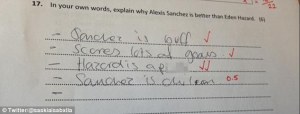 17. In your own words, explain why Alexis Sanchez is better than Eden Hazard. (6)
- Sanchez is buff
- Scores lots of goals
- Hazard is a p
- Sanchez is chilean 0.5
-
Twitter/@